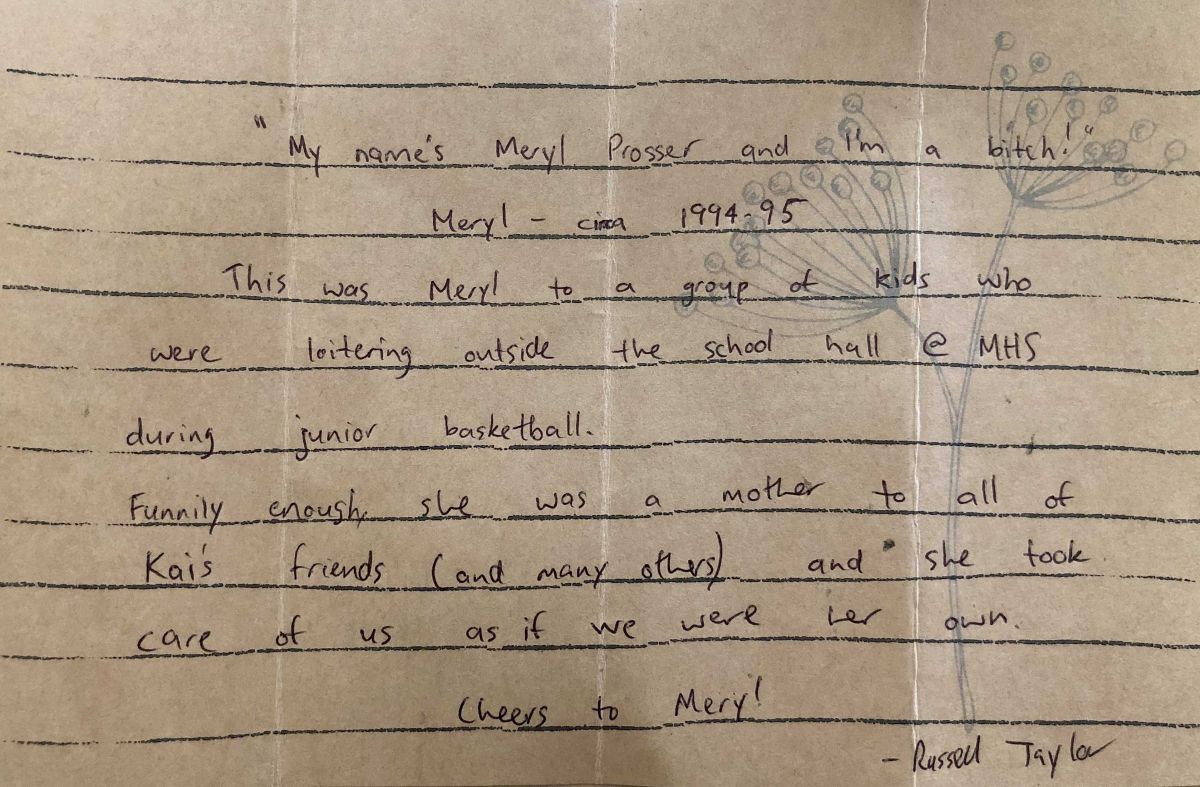 "My name's Meryl Prosser and I'm a bitch!"
Meryl - circa 1994-95
This was Meryl to a group of kids who
were loitering outside the school hall @ MHS
during junior basketball.
Funnily enough, she was a mother to all of
Kai's friends (and many others) and she took
care of us as if we were her own.
Cheers to Meryl
- Russell Taylor